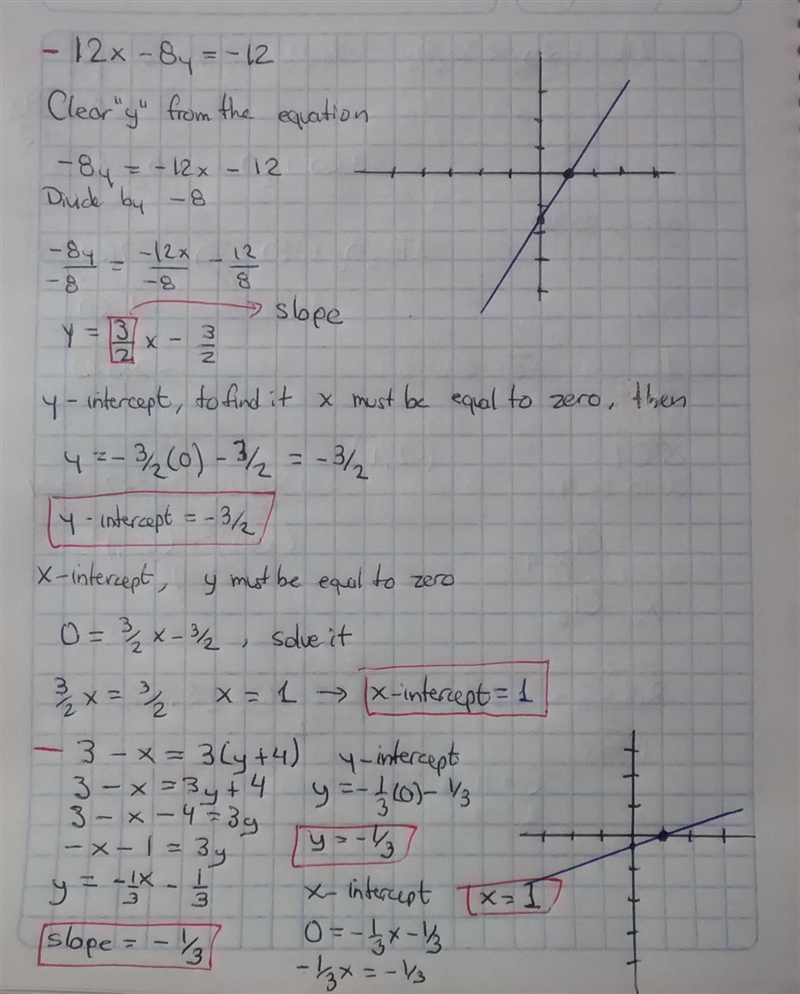 - 12x - 8y = -12
Clear "y" from the equation
-8y = -12x - 12
Divide by -8
-8y/-8 = -12x/-8 - 12/8
slope
y = 3/2 x - 3/2
y-intercept, to find it x must be equal to zero, then
y = -3/2(0) - 3/2 = -3/2
y-intercept = -3/2
x-intercept, y must be equal to zero
0 = 3/2 x - 3/2, solve it
3/2 x = 3/2 x = 1 → x-intercept = 1
- 3 - x = 3(y+4)
3 - x = 3y + 4
3 - x - 4 = 3y
-x - 1 = 3y
y = -1x/3 - 1/3
slope = -1/3
y-intercept
y = -1/3(0) - 1/3
y = -1/3
x-intercept
0 = -1/3 x - 1/3
-1/3 x = -1/3
x = 1